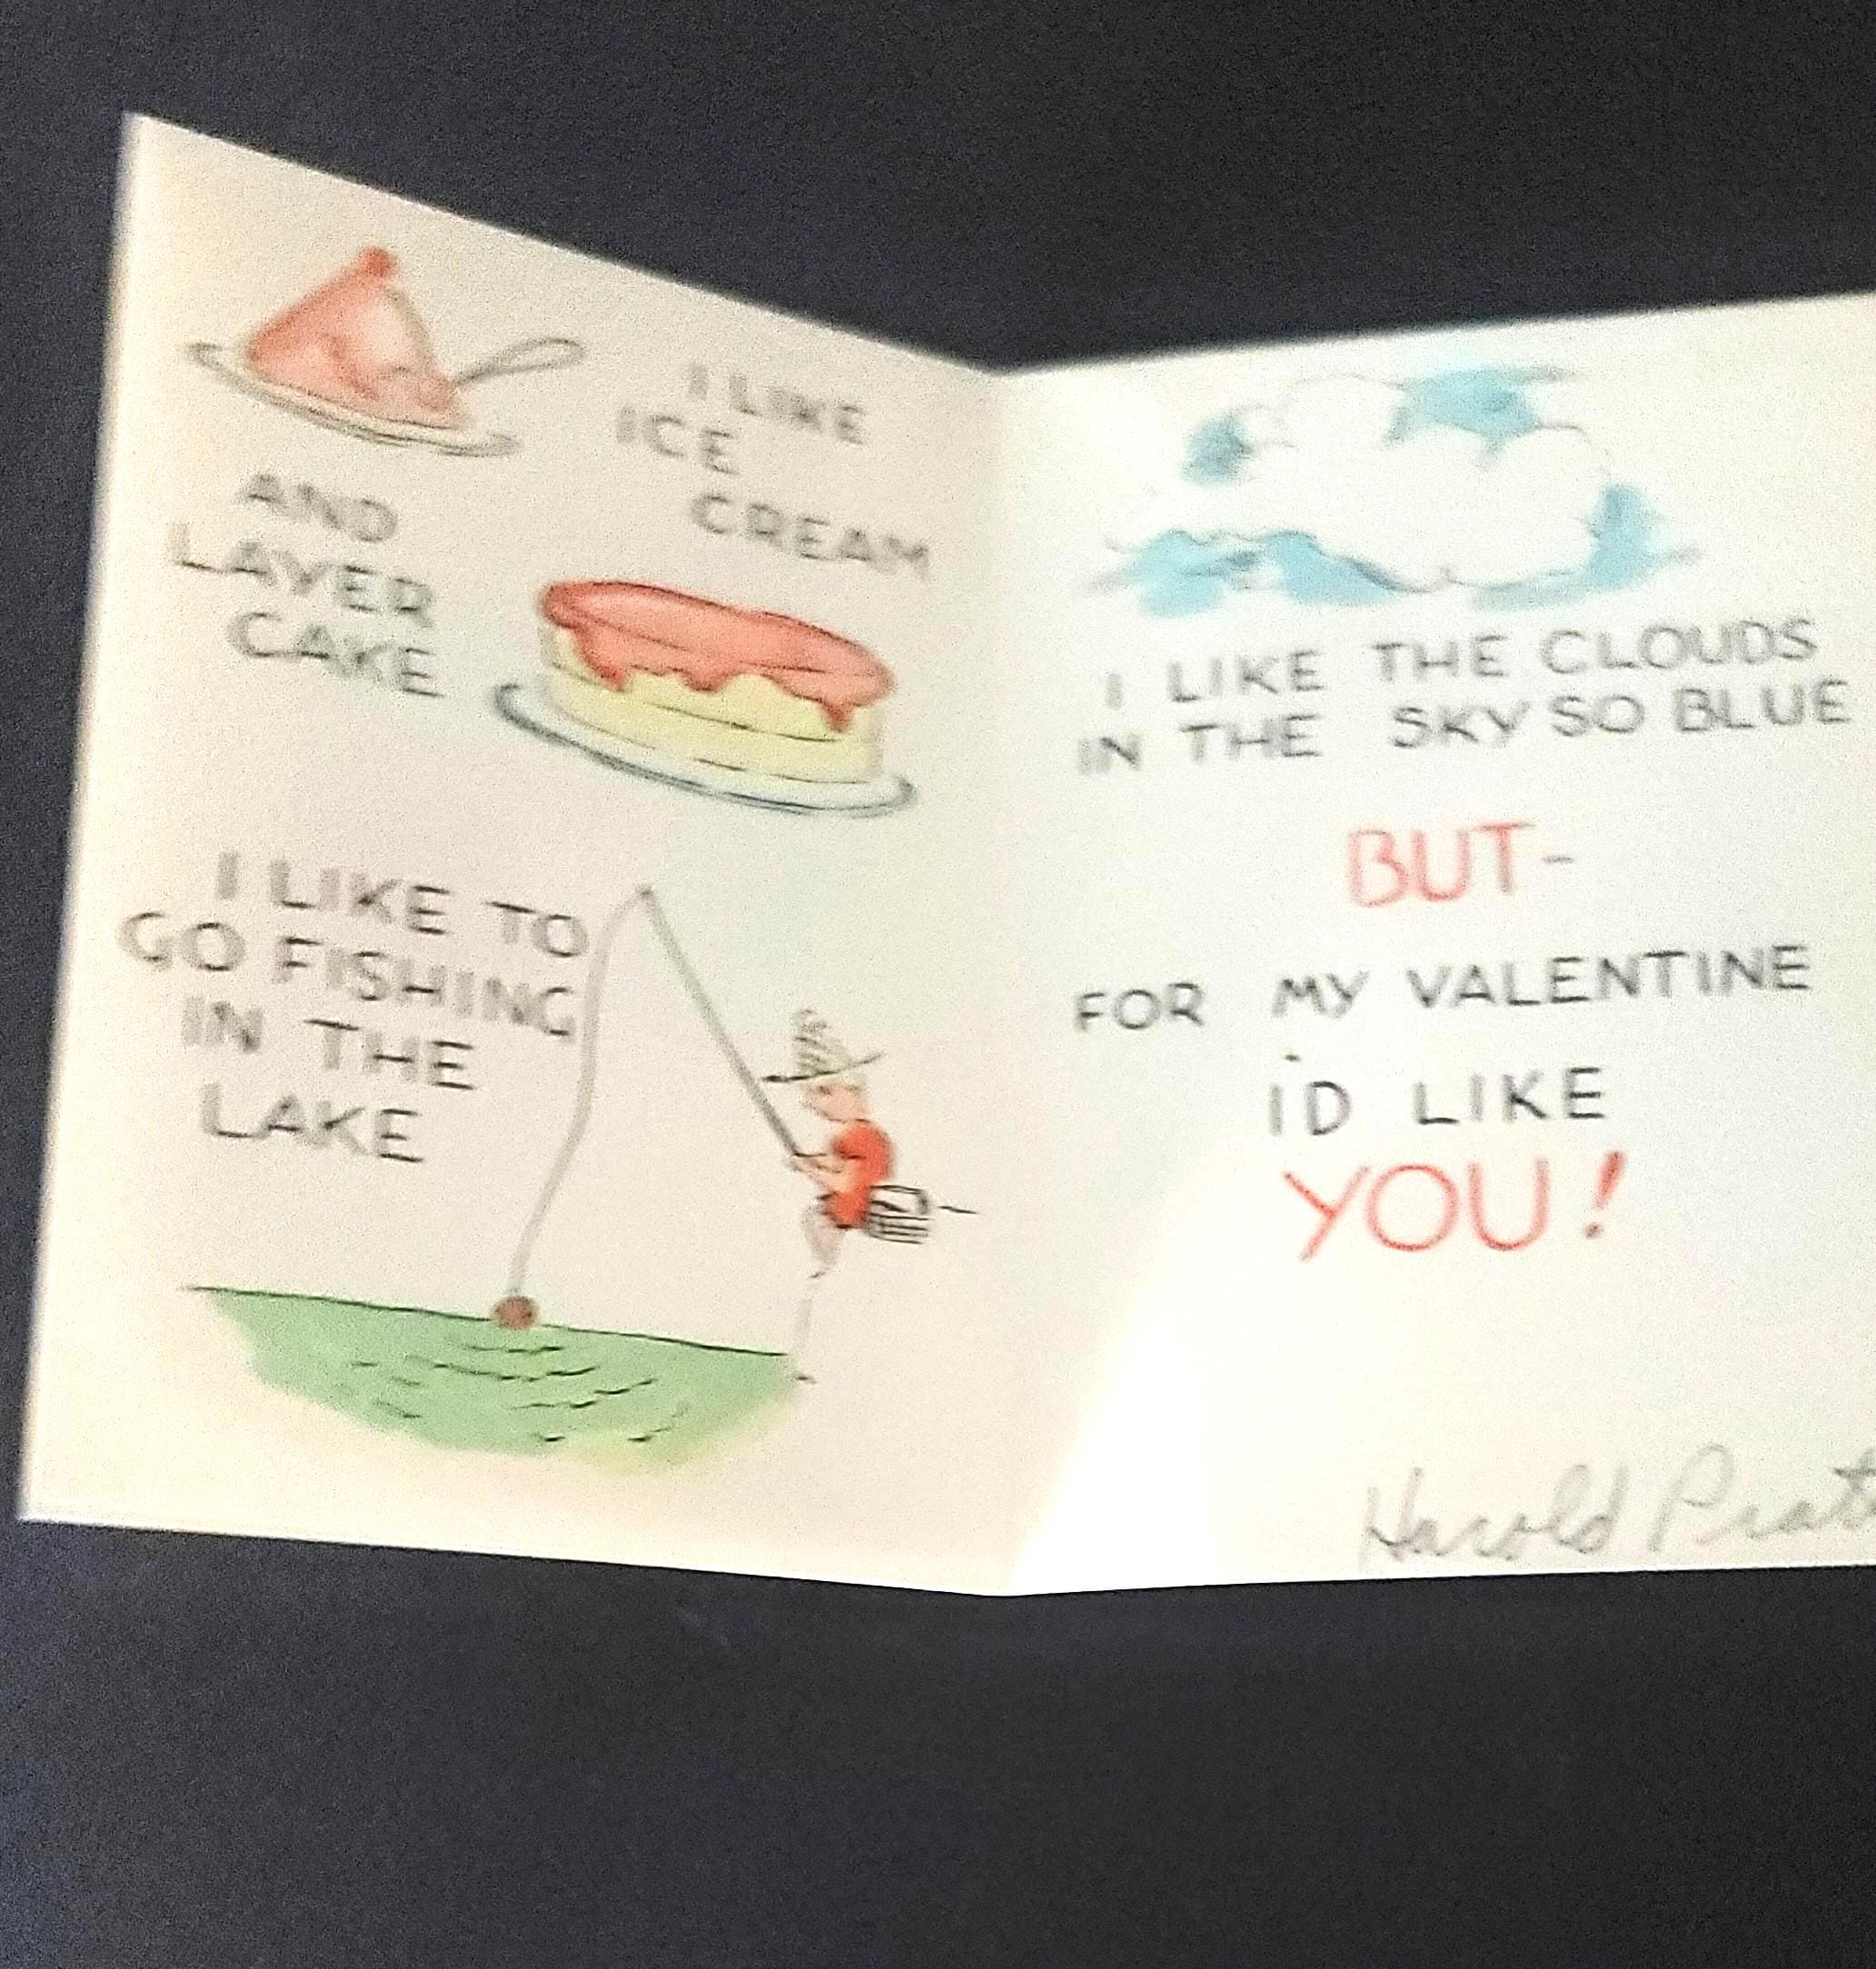 I LIKE
ICE
CREAM
AND
LAYER
CAKE
I LIKE TO
GO FISHING
IN THE
LAKE
I LIKE THE CLOUDS
IN THE SKY SO BLUE
BUT-
FOR MY VALENTINE
I'D LIKE
YOU!
Harold